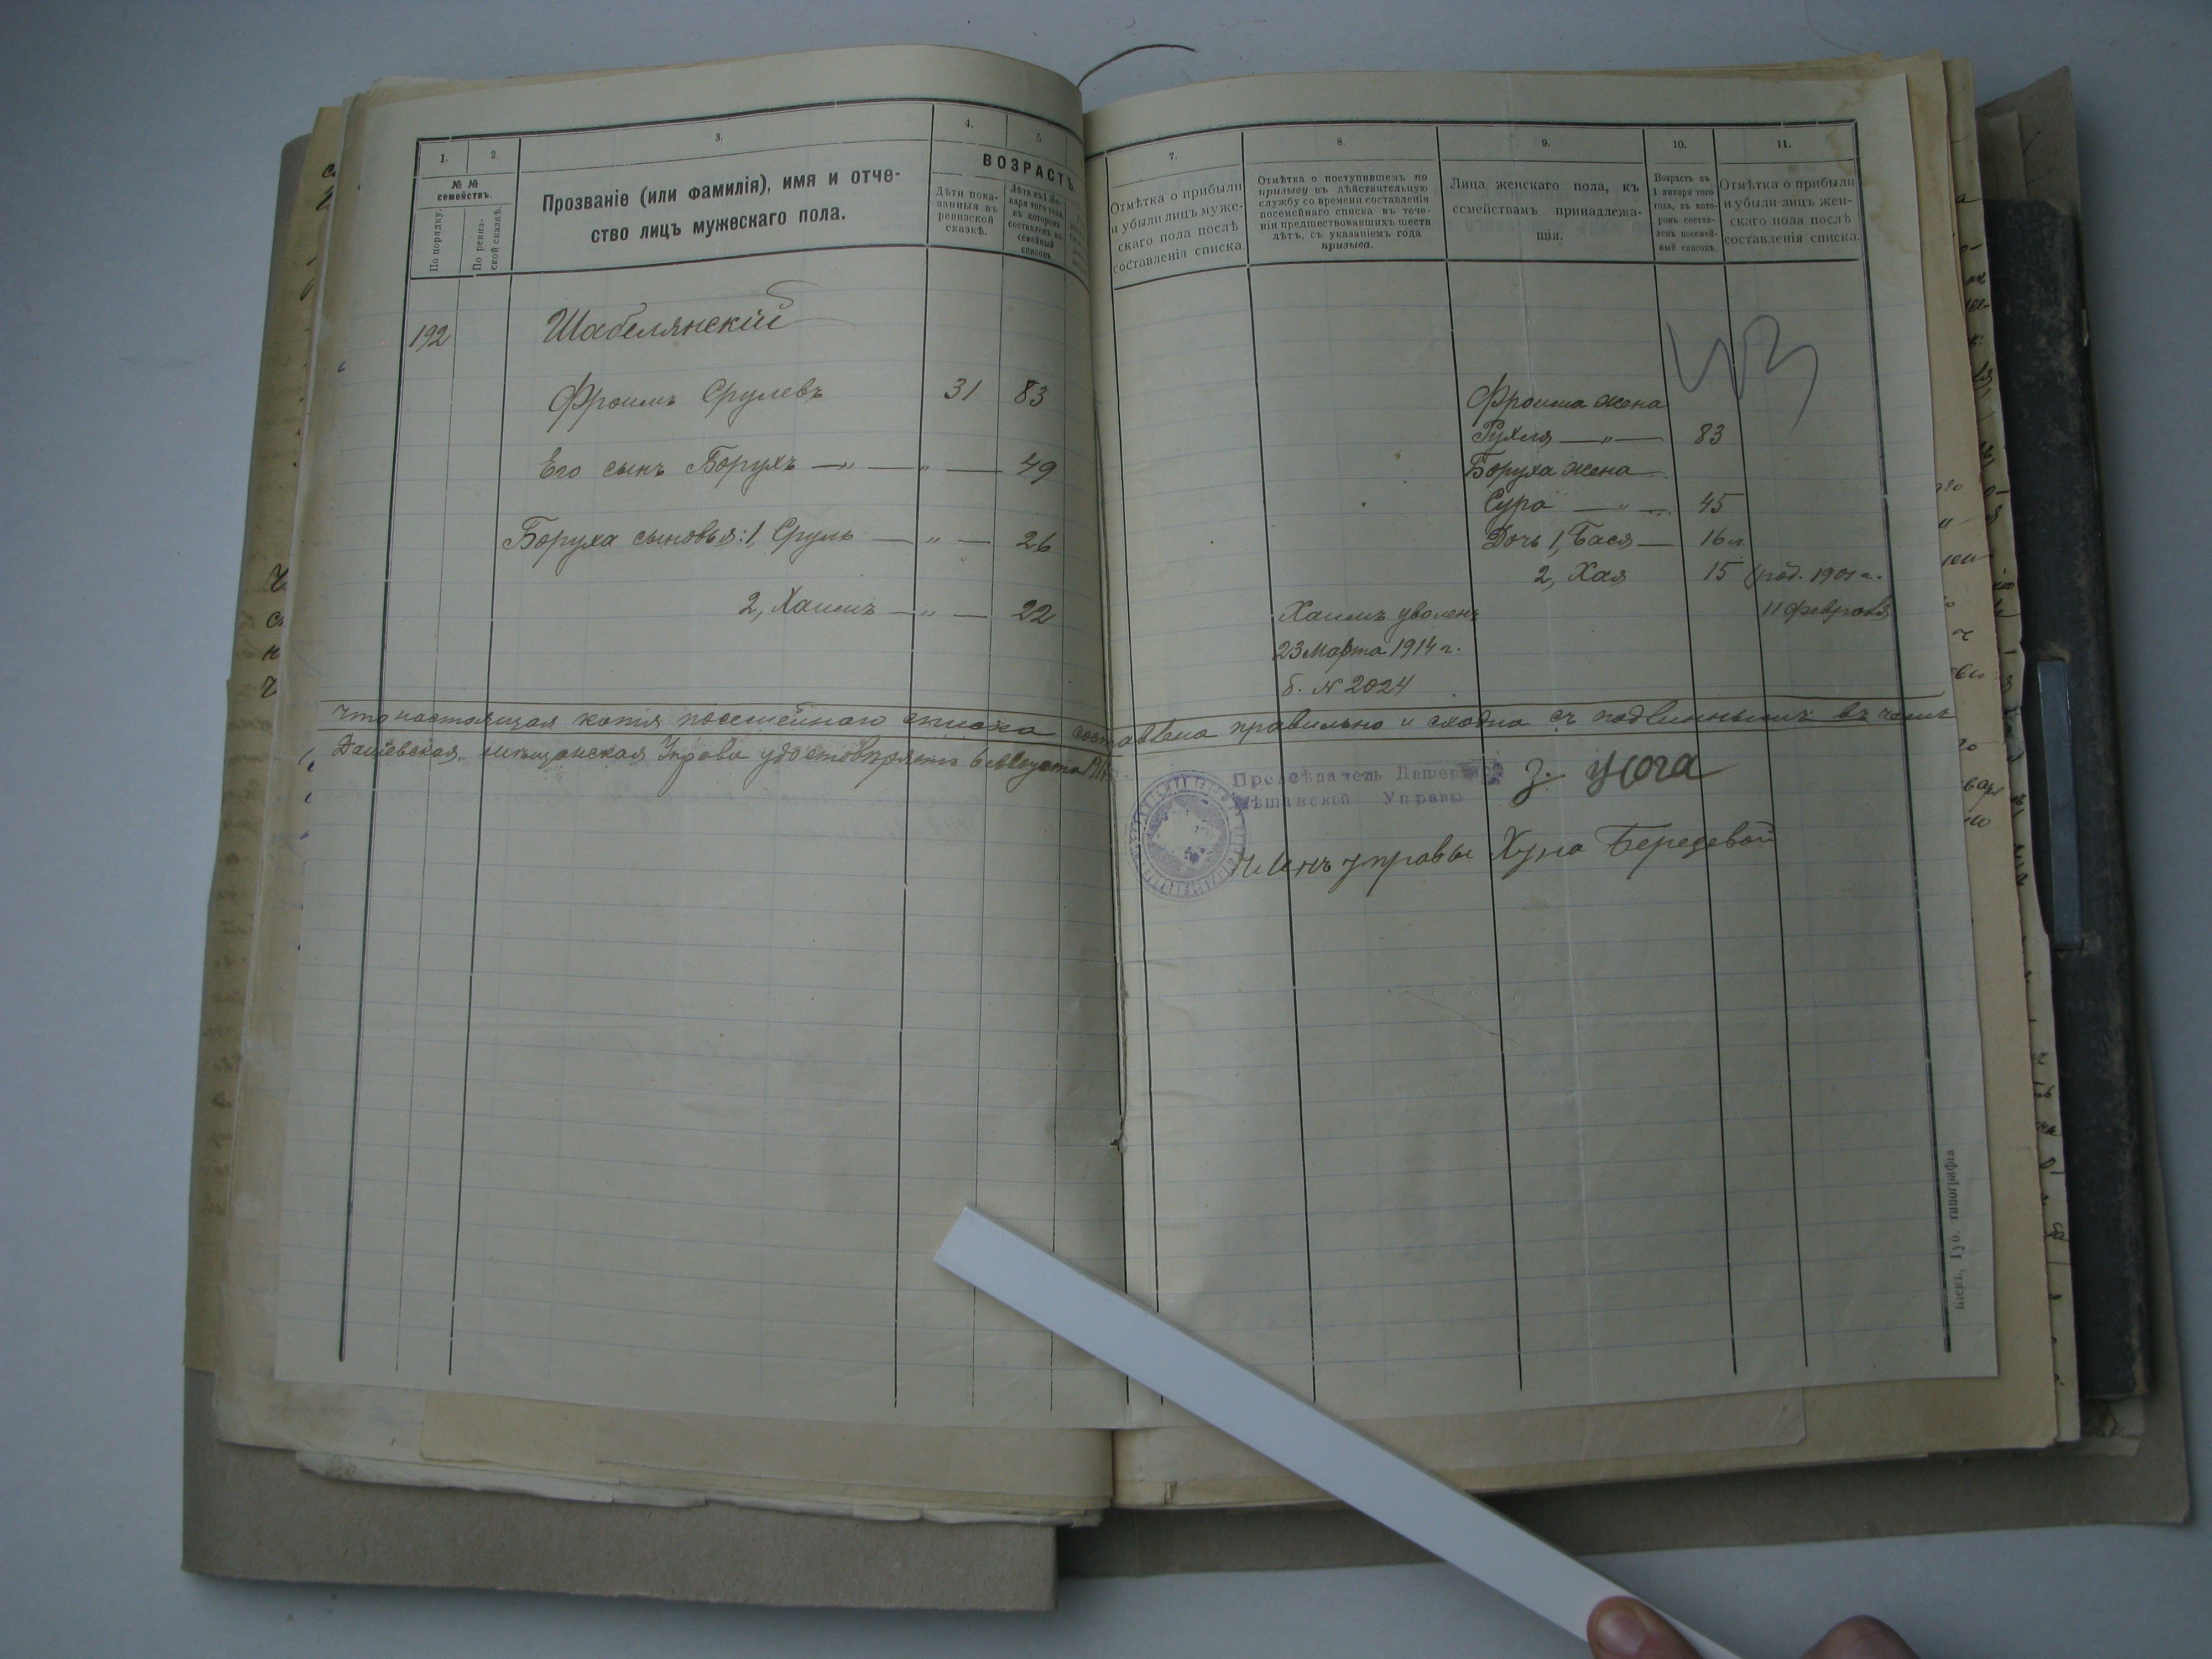 1.
2.
3.
4.
5
№ №
семействъ.
По порядку.
По ревиз-
ской сказкѣ.
Прозваніе (или фамилія), имя и отче-
ство лицъ мужескаго пола.
ВОЗРАСТЪ
Лѣта пока-
занныя въ
ревизской
сказкѣ.
Лѣта къ 1 Ян-
варя того года,
въ которомъ
составленъ по-
семейный
списокъ.
192
Шабелянскій
Фроимъ Срулевъ 31 83
Его сынъ Борухъ — „ — „ — 49
Боруха сыновья: 1, Сруль — „ — 26
2, Хаимъ — „ — 22
7.
8.
9.
10.
11.
Отмѣтка о прибыли
и убыли лицъ муже-
скаго пола послѣ
составленія списка.
Отмѣтка о поступившемъ по
призыву въ дѣйствительную
службу со времени составленія
посемейнаго списка въ тече-
ніи предшествовавшихъ шести
лѣтъ, съ указаніемъ года
призыва.
Лица женскаго пола, къ
семействамъ принадлежа-
щія.
Возрастъ къ
1 января того
года, въ кото-
ромъ состав-
ленъ посемей-
ный списокъ.
Отмѣтка о прибыли
и убыли лицъ жен-
скаго пола послѣ
составленія списка.
Фроима жена
Рухля — „ — 83
Боруха жена
Сура — „ — 45
Дочь 1, Бася — 16 л.
2, Хая 15 род. 1901 г.
11 февраля
Хаимъ уволенъ
23 Марта 1914 г.
б. № 2024
Что настоящая копія посемейнаго списка составлена правильно и сходна съ подлиннымъ въ чемъ
Дашевская мѣщанская Управа удостовѣряетъ 6 Августа
Предсѣдатель Дашевской
Мѣщанской Управы
Членъ управы Хуна Береzовой
Кіевъ, Губ. типографія